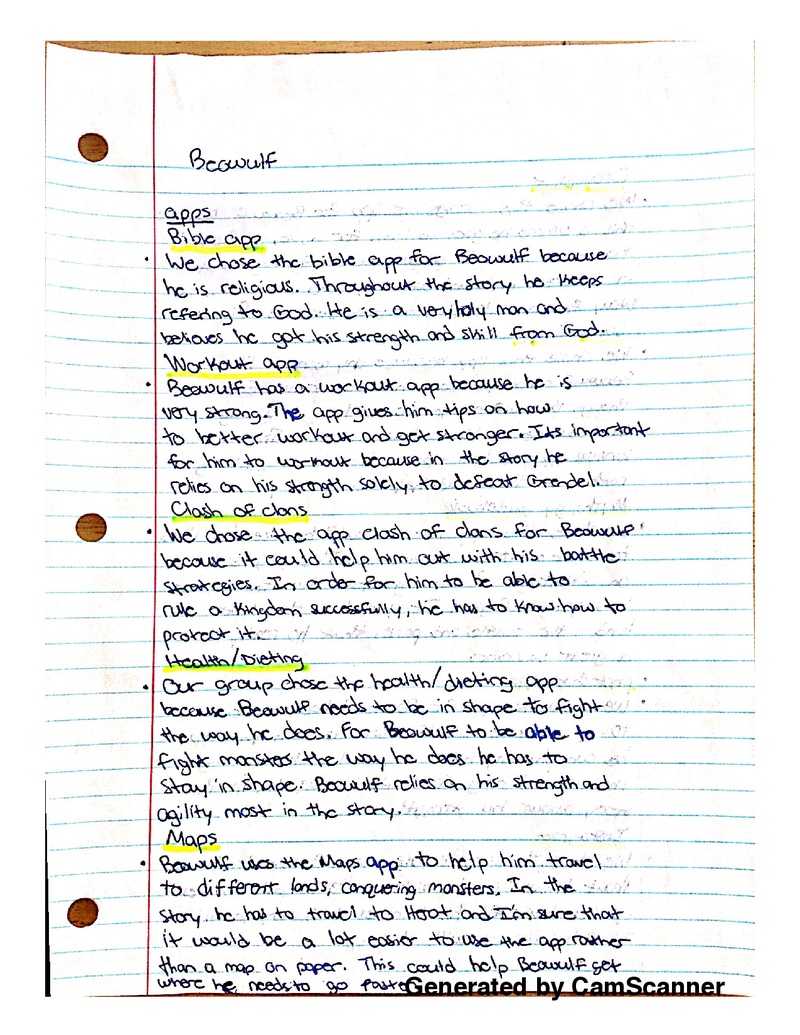 Beowulf
apps
Bible app
• We chose the bible app for Beowulf because
he is religious. Throughout the story he keeps
refering to God. He is a very holy man and
believes he got his strength and skill from God.
Workout app
• Beowulf has a workout app because he is
very strong. The app gives him tips on how
to better workout and get stronger. Its important
for him to workout because in the story he
relies on his strength solely to defeat Grendel.
Clash of clans
• We chose the app clash of clans for Beowulf
because it could help him out with his battle
strategies. In order for him to be able to
rule a kingdom successfully, he has to know how to
protect it.
Health/Dieting
• Our group chose the health/dieting app
because Beowulf needs to be in shape to fight
the way he does. For Beowulf to be able to
fight monsters the way he does he has to
stay in shape. Beowulf relies on his strength and
agility most in the story.
Maps
• Beowulf uses the Maps app to help him travel
to different lands, conquering monsters. In the
story he has to travel to Heot and I'm sure that
it would be a lot easier to use the app rather
than a map on paper. This could help Beowulf get
where he needs to go faste
Generated by CamScanner